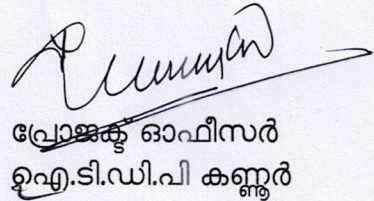 പ്രോജക്ട് ഓഫീസർ
ഐ.ടി.ഡി.പി കണ്ണൂർ